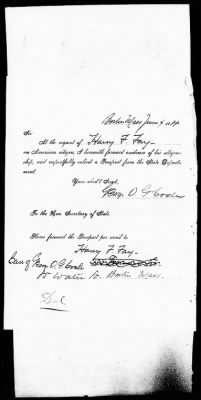 Boston Mass June
Sir
At the request of Harry F. Fay
an American citizen, I herewith forward evidence of his citizen-
ship, and respectfully solicit a Passport from the State Depart-
ment.
Your obed't Serv't,
Geo. O. G. Coale
To the Hon. Secretary of State.
Please forward the Passport per mail to
Harry F. Fay
Care of Geo. O. G. Coale
Water St. Boston Mass.